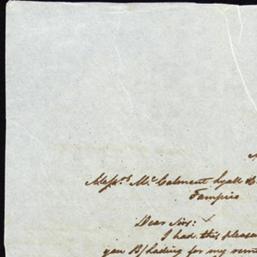 Messrs. McCalmont Lyall &
Tampico
Dear Sirs:
I had this pleasure
you B/Lading for my rem